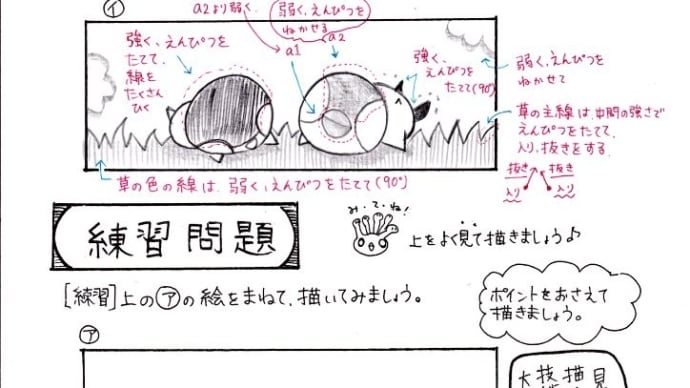 イ
a2より弱く、
弱く、えんぴつを
ねかせる
a1
a2
強く、えんぴつを
たてて、
線を
たくさん
ひく
強く、
えんぴつを
たてて(90°)
弱く、えんぴつを
ねかせて
草の主線は、中間の強さで
えんぴつをたてて、
入り、抜きをする。
抜き 抜き
入り 入り
草の色の線は、弱く、えんぴつをたてて(90°)
練習問題
み・て・ね!
上をよく見て描きましょう♪
[練習]上の㋐の絵をまねて、描いてみましょう。
ポイントをおさえて
描きましょう。
ア